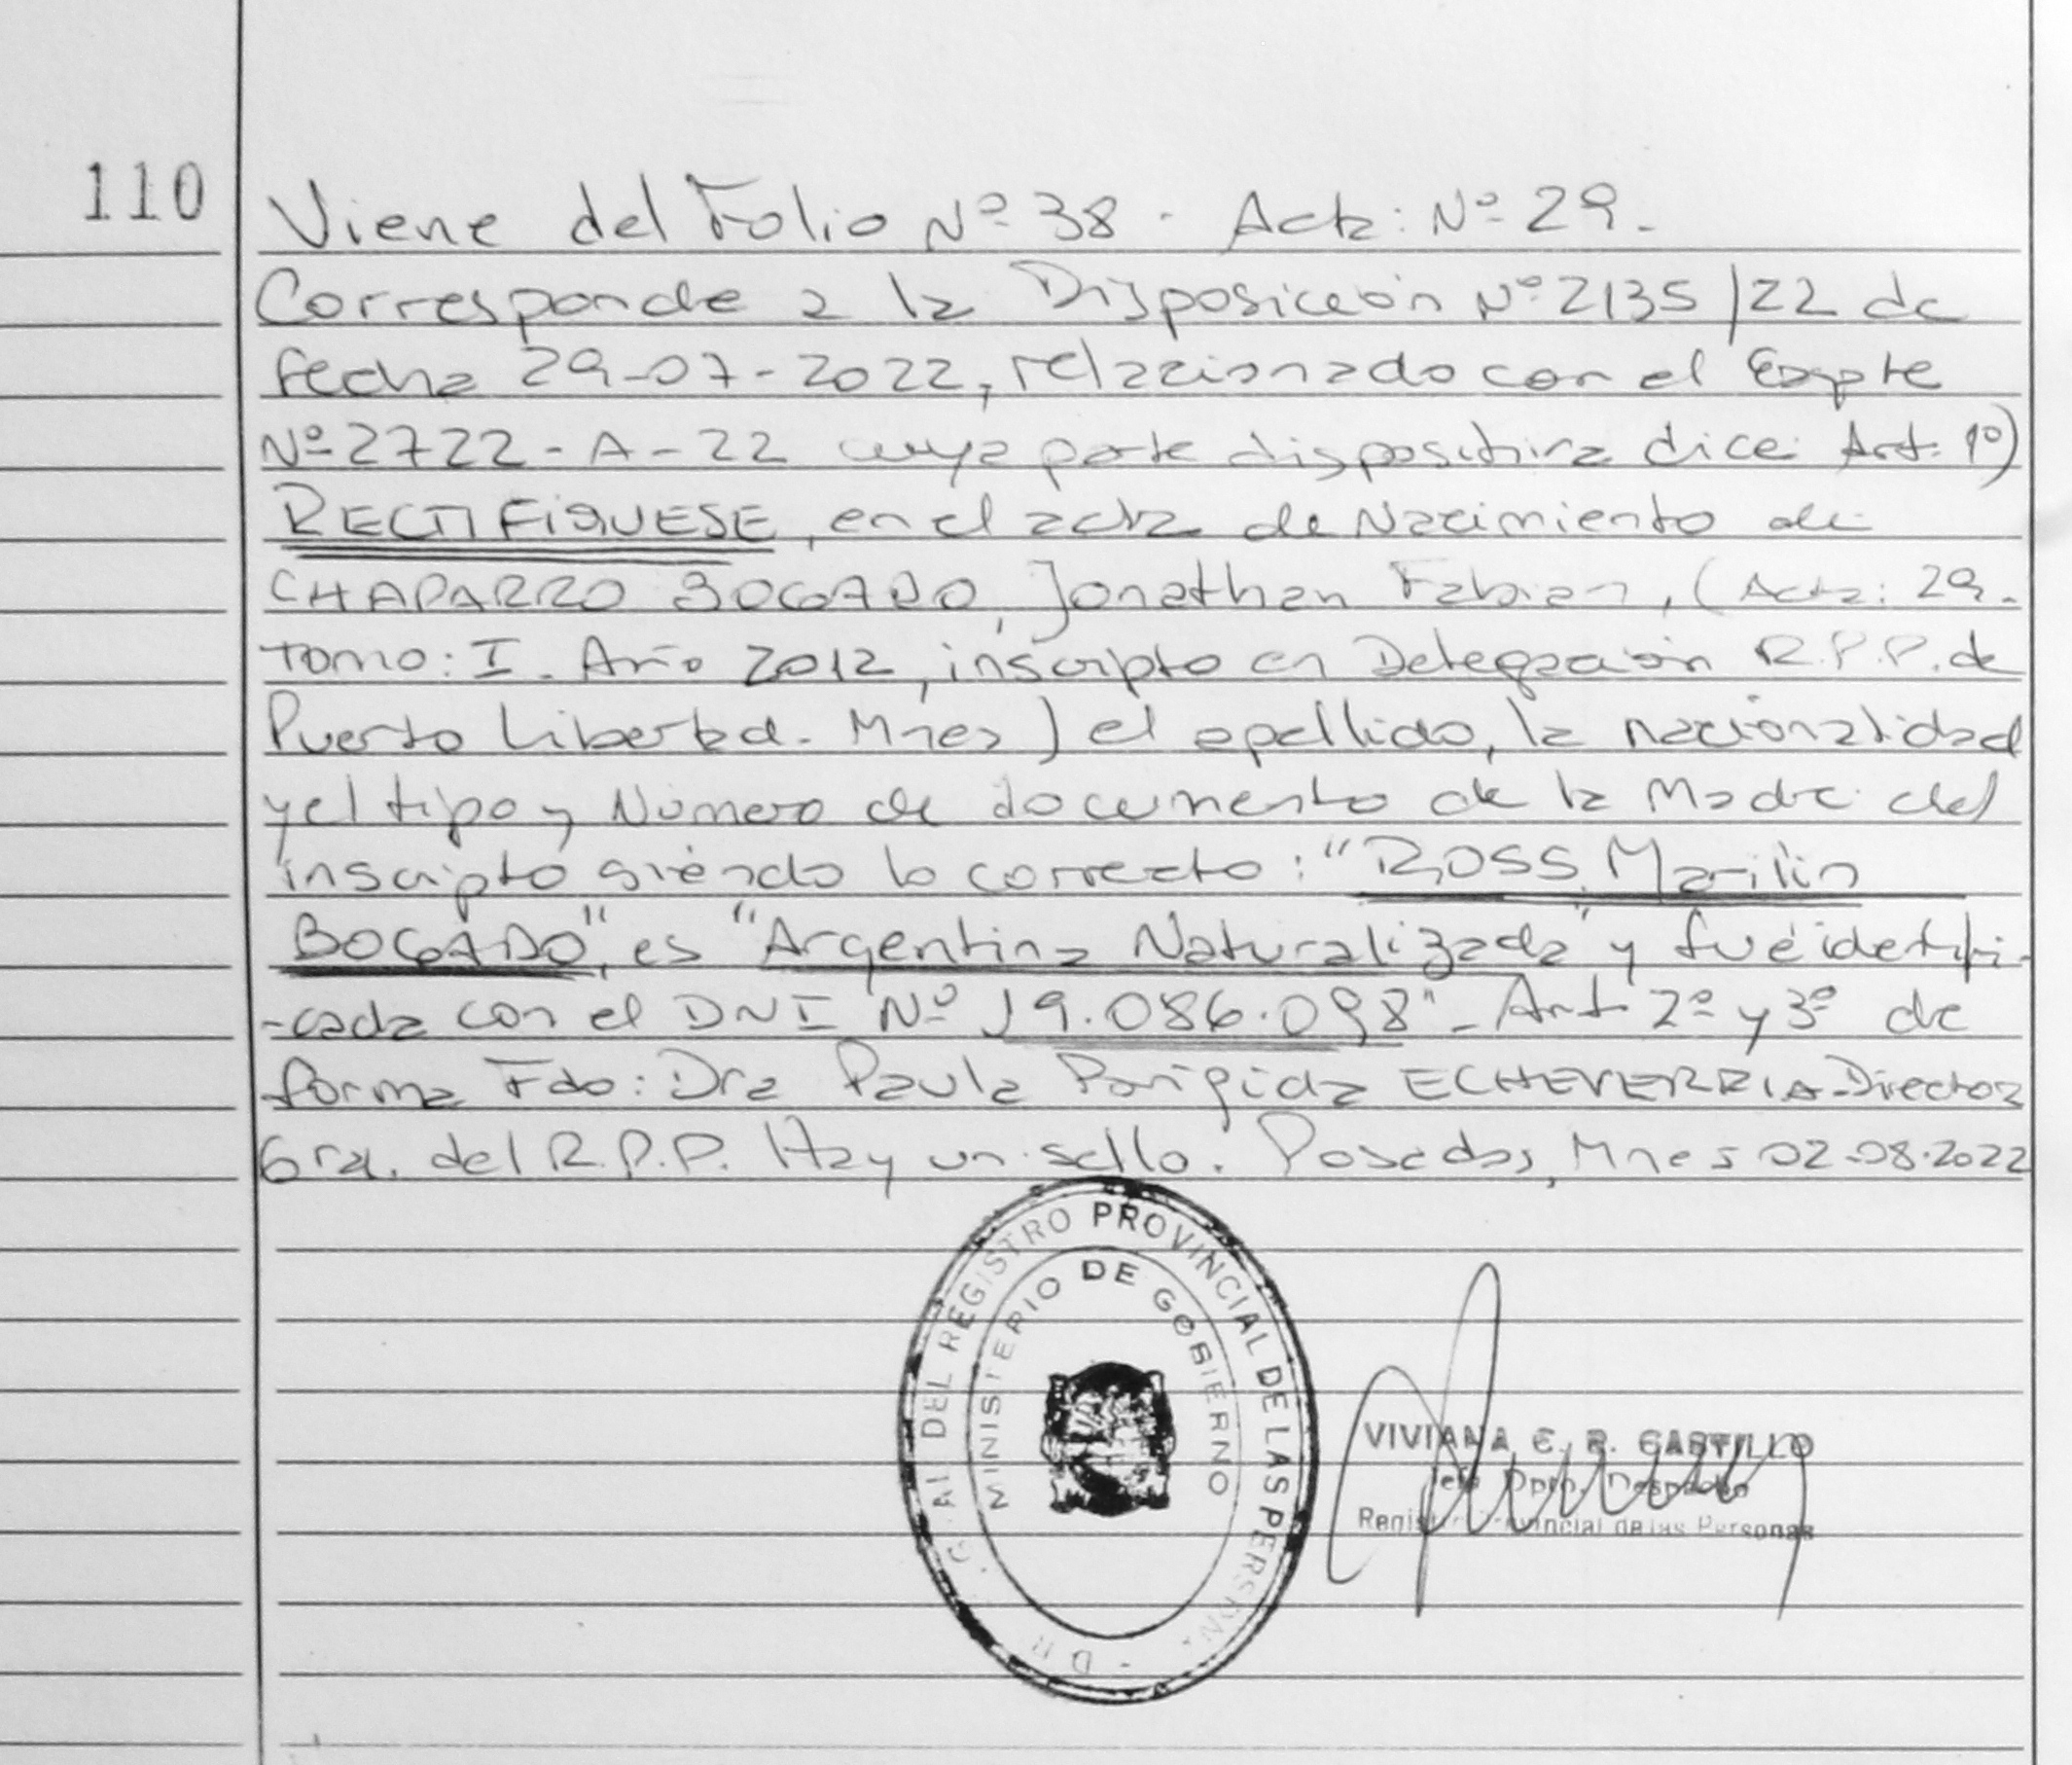 110
Viene del Folio Nº 38 - Acta: Nº 29.-
Corresponde a la Disposición Nº 2135/22 de
fecha 29-07-2022, relacionado con el Expte
Nº 2722-A-22 cuya parte dispositiva dice: Art. 1º)
RECTIFIQUESE, en el acta de Nacimiento de
CHAPARRO BOGADO, Jonathan Fabian, (Acta: 29.
Tomo: I. Año 2012, inscripto en Delegación R.P.P. de
Puerto Libertad. Mnes) el apellido, la nacionalidad
y el tipo y Número de documento de la Madre del
inscripto siendo lo correcto: "ROSS Marilin
BOGADO", es "Argentina Naturalizada" y fué identifi-
-cada con el DNI Nº 19.086.098"- Art 2º y 3º de
forma Fdo: Dra Paula ECHEVERRIA-Directora
Gral. del R.P.P. Hay un sello. Posadas, Mnes 02-08-2022
DEL REGISTRO PROVINCIAL DE LAS PERSONA
MINISTERIO DE GOBIERNO
VIVIANA E. R. CASTILLO
Jefa Dpto. Despacho
Registro Provincial de las Personas